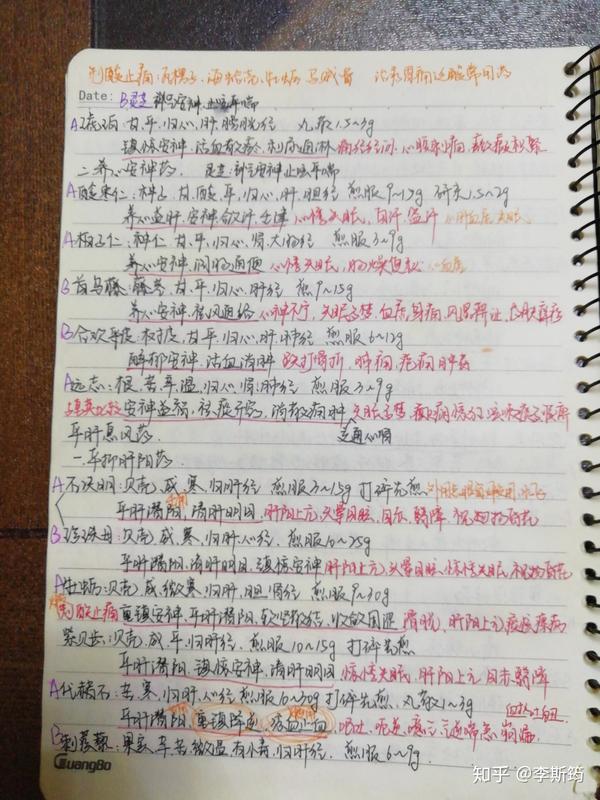 制酸止痛:瓦楞子、海蛤壳、牡蛎 治表胃病
Date: B灵芝 补气安神 止咳平喘
A琥珀:甘,平,归心、肝、膀胱经 丸散1.5~3g
镇惊安神,活血散瘀,利尿通淋 心腹刺痛,癥瘕积聚
二.养心安神药. 灵芝:补气安神止咳平喘
A酸枣仁:种子,甘,酸,平,归心、肝、胆经 煎服9~15g 研末1.5~2g
养心益肝,安神,敛汗,生津 心悸失眠,自汗,盗汗 心肝血虚失眠
A柏子仁:种仁,甘,平,归心、肾、大肠经 煎服3~9g
养心安神,润肠通便 心悸失眠,肠燥便秘 心血虚
B首乌藤:藤茎,甘,平,归心、肝经 煎9~15g
养心安神,祛风通络 心神不宁,失眠多梦,血虚身痛,风湿痹证,皮肤痒疹
B合欢皮:树皮,甘,平,归心、肝、肺经 煎服6~12g
解郁安神,活血消肿 跌打骨折,肺痈,疮痈
A远志:根,苦,辛,温,归心、肾、肺经 煎服3~9g
安神益智,祛痰开窍,消散痈肿 失眠多梦
交通心肾
平肝息风药.
一.平抑肝阳药
A石决明:贝壳,咸,寒,归肝经 煎服3~15g 打碎先煎
平肝潜阳,清肝明目,肝阳上亢,头晕目眩,目赤,翳障,视物昏花
B珍珠母:贝壳,咸,寒,归肝、心经,煎服10~25g
平肝潜阳,清肝明目,镇惊安神 肝阳上亢,头晕目眩,惊悸失眠,视物昏花
A牡蛎:贝壳,咸,微寒,归肝、胆、肾经 煎服9~30g
制酸止痛 重镇安神,平肝潜阳,软坚散结,收敛固涩 滑脱,肝阳上亢
紫贝齿:贝壳,咸,平,归肝经,煎服10~15g 打碎先煎
平肝潜阳,镇惊安神,清肝明目 惊悸失眠,肝阳上亢 目赤翳障
A代赭石:苦,寒,归肝、心经 煎服6~30g 打碎先煎,丸散1~3g
平肝潜阳,重镇降逆,凉血止血 呕吐,呃逆,噫气,气逆喘息,崩漏 血热吐衄
B刺蒺藜:果实,辛,苦,微温,有小毒,归肝经. 煎服6~9g.
GuangBo
知乎 @李斯筠